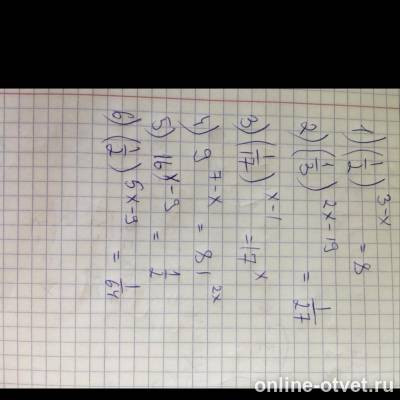 1) (1/2)^(3-x) = 8
2) (1/3)^(2x-19) = 1/27
3) (1/17)^(x-1) = 17^x
4) 9^(7-x) = 81^(2x)
5) 16^(x-9) = 1/2
6) (1/2)^(5x-9) = 1/64
online-otvet.ru